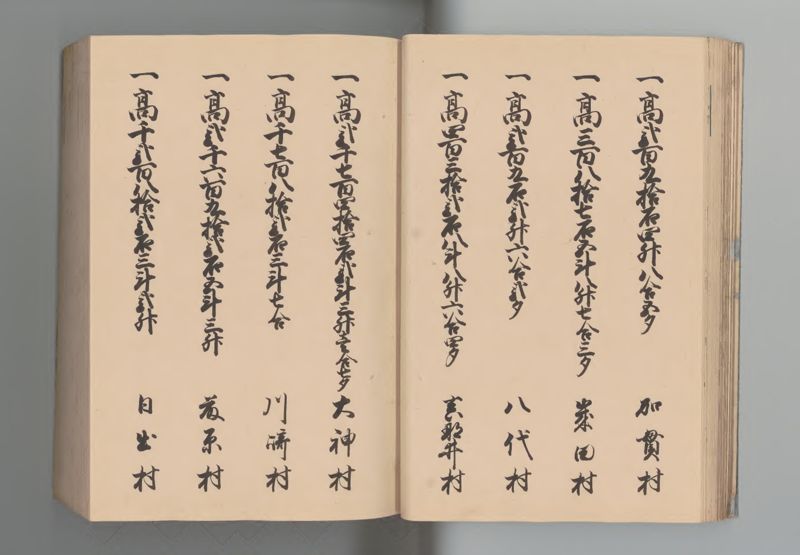 一高弐百五拾石四升八合五夕 加貫村
一高三百八拾七石五斗八升七合三夕 柴田村
一高弐百五石弐升六合弐夕 八代村
一高四百三拾弐石八斗八升六合四夕 真那井村
一高弐千七百四拾四石弐斗三升壱合七夕 大神村
一高千七百八拾弐石三斗七合 川﨑村
一高弐千六百九拾弐石五斗三升 藤原村
一高千弐百八拾弐石三斗弐升 日出村